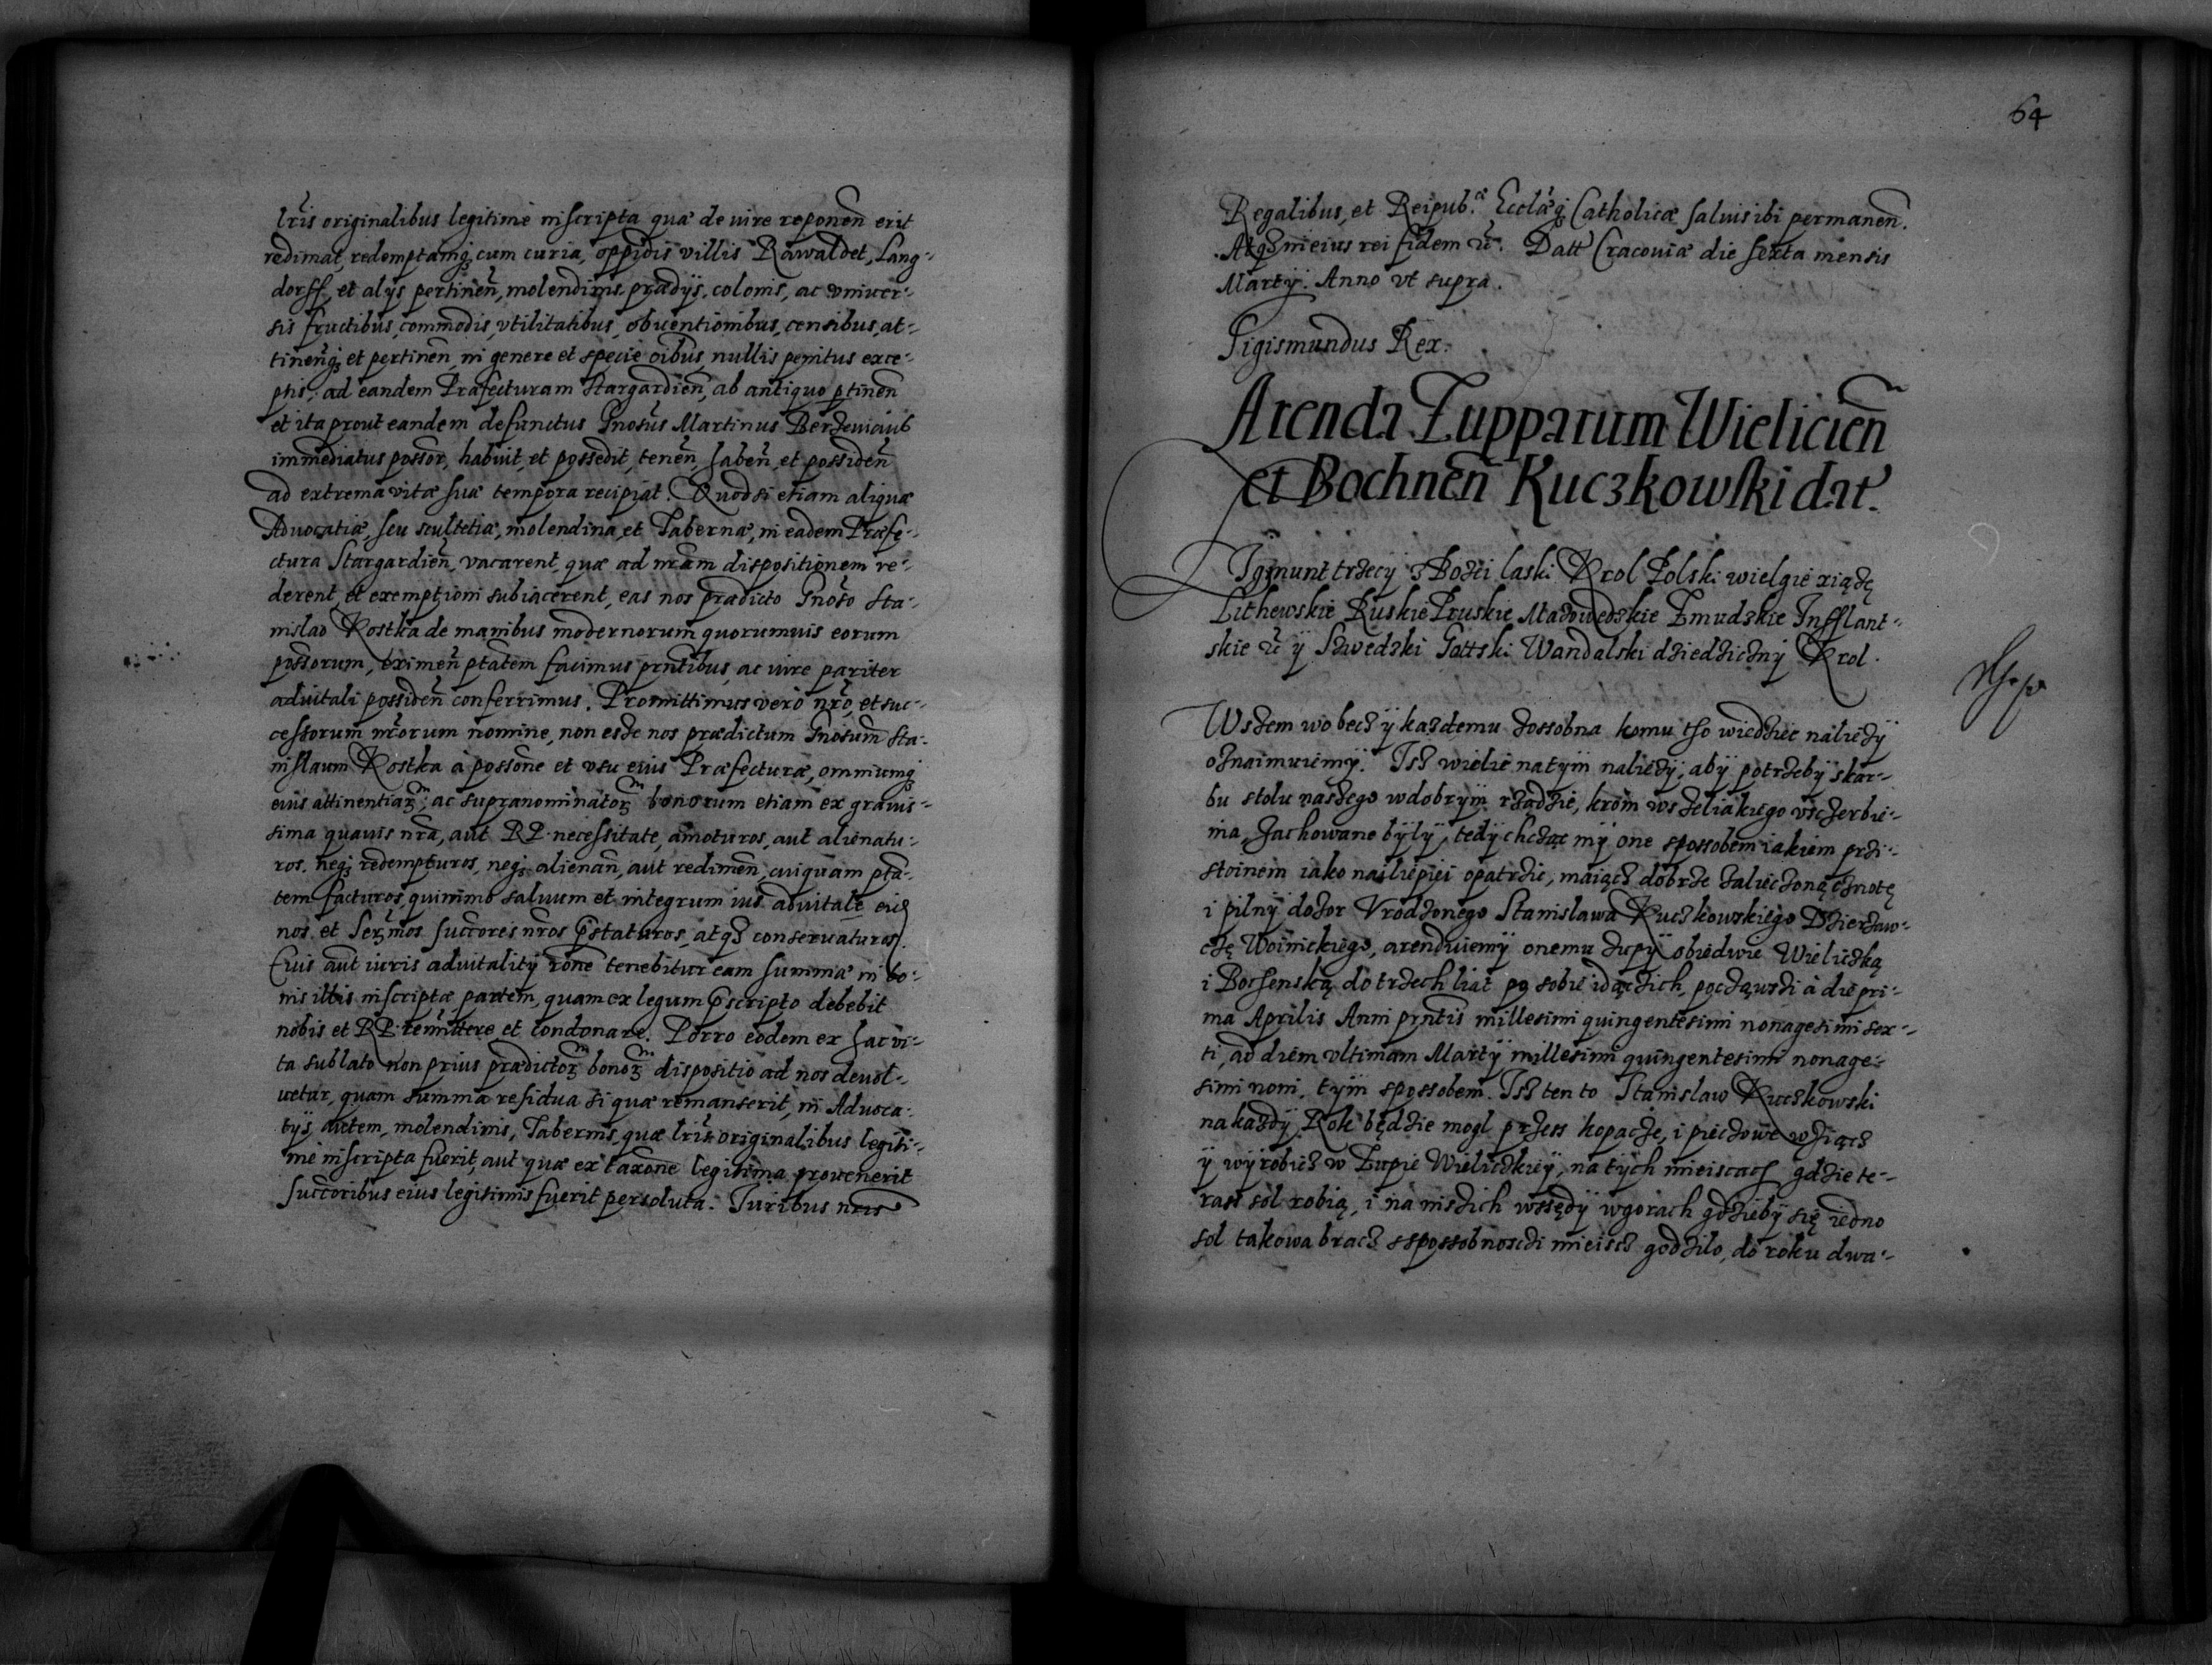 lr̃is originalibus legitime inscripta quæ de iure reponeñ erit
redimat, redemptamq̃ cum curia, oppidis villis Rawaldet, Lang-
dorff, et alijs pertineñ, molendinis, prædijs, colonis, ac vniuer-
sis fructibus, commodis, vtilitatibus, obuentionibus, censibus, at-
tineñq̃ et pertineñ, in genere et specie oĩbus, nullis penitus exce-
ptis, ad eandem Præfecturam Stargardieñ, ab antiquo ptineñ
et ita prout eandem defunctus Gnosus Martinus
immediatus possor, habuit, et possedit, teneñ, habeñ, et possideñ
ad extrema vitæ suæ tempora recipiat. Quod si etiam aliquæ
Aduocatiæ, seu scultetiæ, molendina, et Tabernæ, in eadem Præfe-
ctura Stargardieñ, vacarent, quæ ad nr̃am dispositionem re-
derent, et exemptioni subiacerent, eas nos prædicto Gnoso Sta-
nislao Kostka de manibus modernorum quorumuis eorum
possorum, eximeñ ptãtem facimus prñtibus, ac iure pariter
aduitali possideñ conferrimus. Promittimus vero nr̃o, et suc-
cessorum nr̃orum nomine, non esse nos prædictum Gnosum Sta-
nislaum Kostka à possõne et vsu eius Præfecturæ, omniumq̃
eius attinentiaꝝ, ac supranominatoꝝ bonorum etiam ex grauis-
sima quauis nr̃a, aut RP. necessitate, amoturos, aut alienatu-
ros, neq̃ redempturos, neq̃ alienañ, aut redimeñ, cuiquam ptã-
tem facturos, quinimo saluum et integrum ius aduitale eiꝰ
nos et Serm̃os succ̃ores nr̃os p̃staturos, atqꝫ conseruaturos.
Cuius aut iuris aduitalitÿ rõne tenebitur eam summæ in bo-
nis illis inscriptæ partem, quam ex legum p̃scripto debebit
nobis et RP. remittere et condonare. Porro eodem ex hac vi-
ta sublato non prius prædictoꝝ bonoꝝ dispositio ad nos deuol-
uetur, quam summa residua si quæ remanserit, in Aduoca-
tÿs autem, molendinis, Tabernis, quæ lr̃is originalibus legiti-
me inscripta fuerit, aut quæ ex taxõne legitima prouenerit
succ̃oribus eius legitimis fuerit persoluta. Iuribus nr̃is
64
Regalibus, et Reipub.æ Ecclæq̃ Catholicæ saluis ibi permaneñ.
Atqꝫ in eius rei fidem &c̃. Datt Cracouiæ die sexta mensis
Martÿ. Anno vt supra.
Sigismundus Rex.
Arenda Zupparum Wielicieñ
et Bochneñ Kuczkowski dat.
Zigmunt trzecÿ z Bożei laski Krol Polski wielgie xiążę
Lithewskie Ruskie Pruskie Mazowedzkie Żmudzkie Inflant-
skie &c̃ ÿ Szwedzki Gottski Wandalski dziedzicznÿ Krol.
Wszem wobecz ÿ kazdemu zossobna komu tho wiedziec nalieżÿ
oznaimuiemÿ. Isz wielie na tÿm nalieżÿ, abÿ potrzebÿ skar-
bu stolu naszego w dobrÿm rządzie, krom wszeliakiego vsczerbie-
nia zachowane bÿlÿ, tedÿ chcząc mÿ one spossobem iakiem przi-
stoinem iako nailiepiei opatrzic, maiącz dobrze zaliecżoną cznotę
i pilnÿ dozor Vrodzonego Stanislawa Kuczkowskiego Dzierżaw-
czę Woinickiego, arenduiemÿ onemu żupÿ obiedwie Wieliczką
i Bochenską do trzech liat po sobie idączich, począwszi à die pri-
ma Aprilis Anni prñtis millesimi quingentesimi nonagesimi sex-
ti, ad diem vltimam Martÿ millesimi quingentesimi nonage-
simi noni, tÿm spossobem. Isz ten to Stanislaw Kuczkowski
na kazdÿ Rok będzie mogl przess kopacze, i piecżowe wziącz
ÿ wÿrobicz w Zupie Wieliczkieÿ, na tÿch mieiscach gdzie te-
rass sol robią, i na niszich wssędÿ w gorach gdziebÿ się iedno
sol takowa bracz sspossobnosczi mieiscz godzilo, do roku dwa-